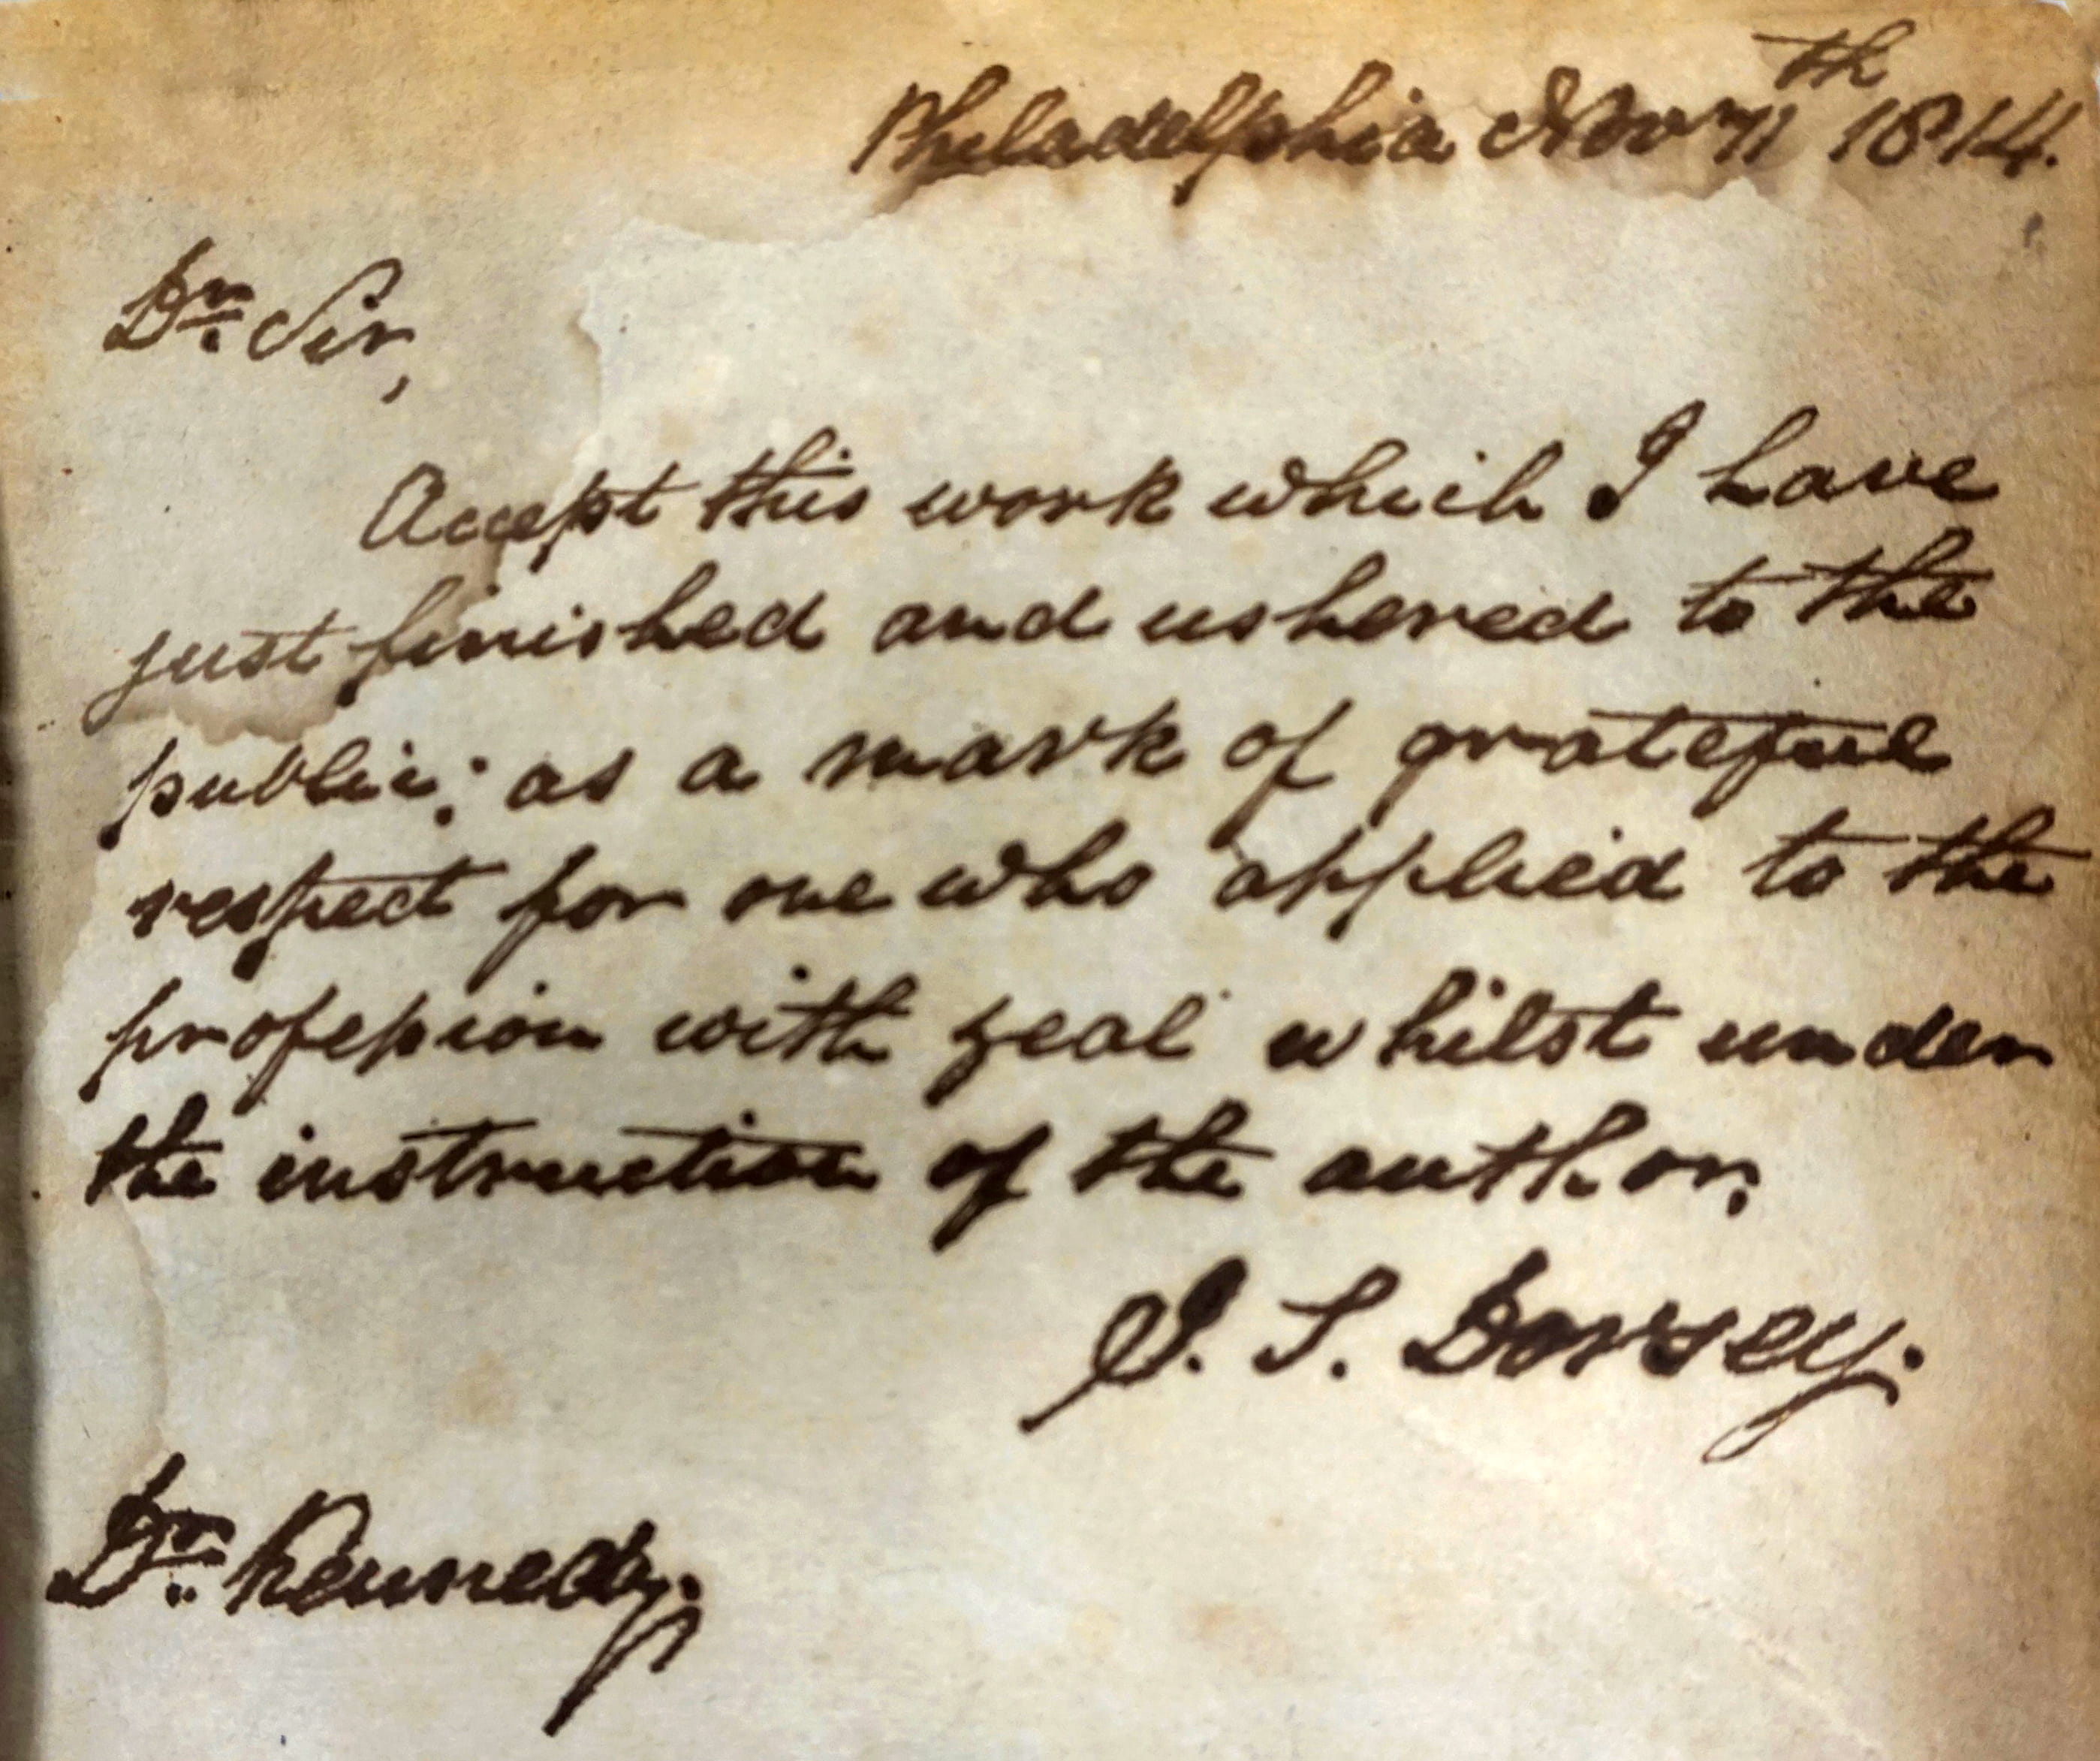 Philadelphia Nov 11th 1814.
Dr. Sir,
Accept this work which I have
just finished and ushered to the
public; as a mark of grateful
respect for one who applied to the
profession with zeal whilst under
the instruction of the author.
J. S. Dorsey.
Dr. Kennedy.